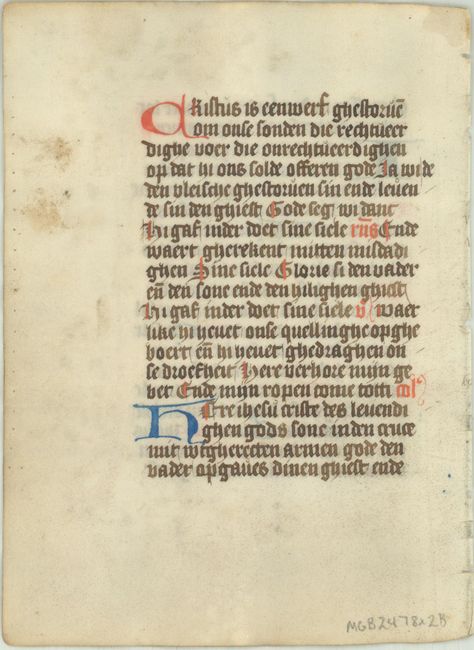 Cristus is eenwerf ghestoruē
om onse sonden die rechtueer
dighe voer die onrechtueerdighen
op dat hi ons solde offeren gode Ja wi de
den vleische ghestoruen sin ende leuen
de sin den ghiest Gode seg wi danc
Hi gaf inder doet sine siele Ende
waert gherekent mitten misdadi
ghen Sine siele Glorie si den vader
eñ den sone ende den hilighen ghiest
Hi gaf inder doet sine siele v̄ waer
like hi heuet onse quellinghe opghe
voert eñ hi heuet ghedraghen on
se droefheit Here verhore mijn ge
bet Ende mijn ropen come totti col
Here ihesu criste des leuendi
ghen gods sone inden cruce
mit wtgherecten armen gode den
vader op gaues dinen ghiest ende
MGB2478x2B